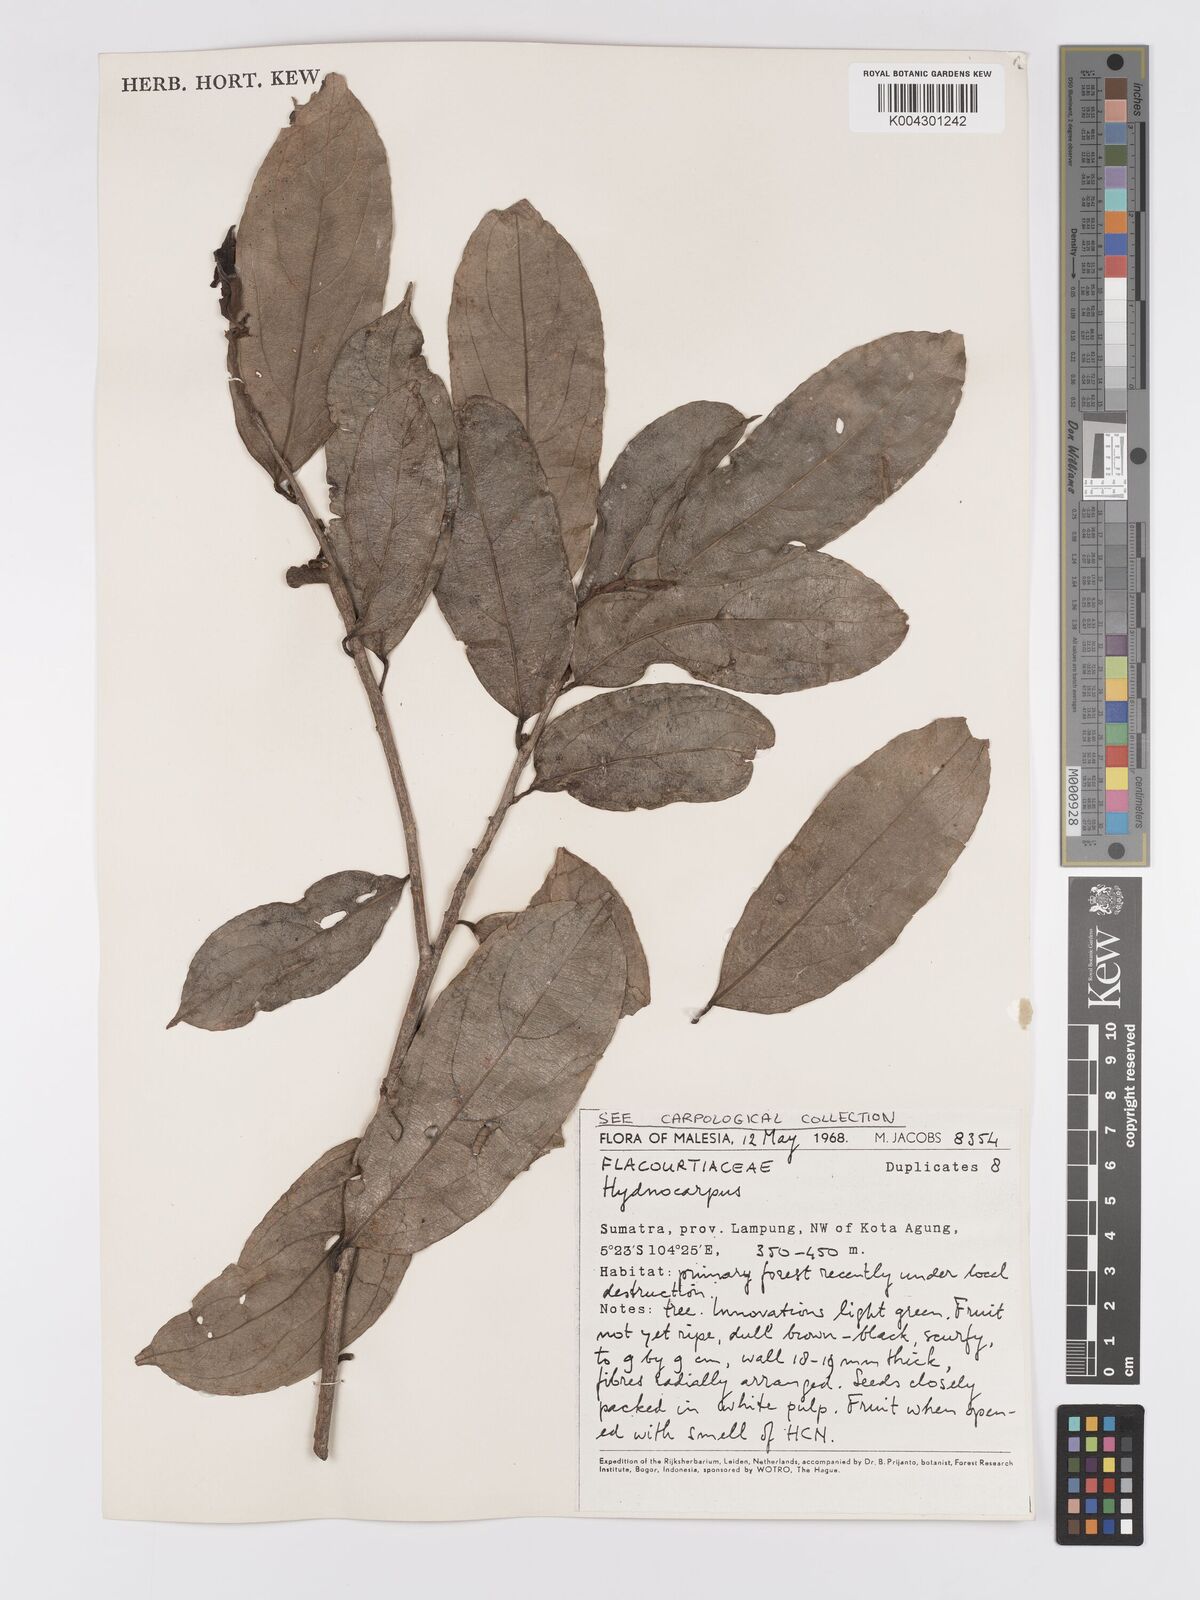 HERB. HORT. KEW.
ROYAL BOTANIC GARDENS KEW
K004301242
SEE CARPOLOGICAL COLLECTION
FLORA OF MALESIA, 12 May 1968. M. JACOBS 8354
FLACOURTIACEAE Duplicates 8
Hydnocarpus
Sumatra, prov. Lampung, NW of Kota Agung,
5°23'S 104°25'E, 350-450 m.
Habitat: primary forest recently under local
destruction.
Notes: tree. Innovations light green. Fruit
not yet ripe, dull brown-black, scurfy,
to 9 by 9 cm, wall thick,
fibres radially arranged. Seeds closely
packed in white pulp. Fruit when open-
ed with smell of HCN.
Expedition of the Rijksherbarium, Leiden, Netherlands, accompanied by Dr. B. Prijanto, botanist, Forest Research
Institute, Bogor, Indonesia, sponsored by WOTRO, The Hague.
inches
centimeters
Density
Don Williams
M000928
Royal Botanic Gardens
Kew
copyright reserved
0 1 2 3 4 5 6 7 8 9 10
cm